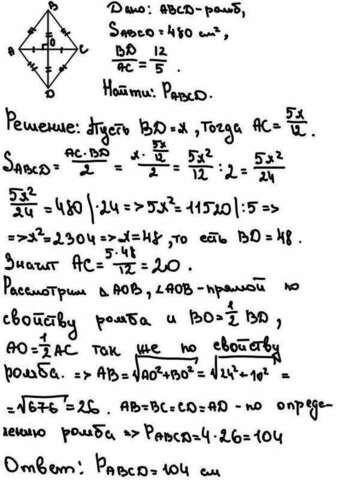 B
A
O
C
D
Дано: ABCD-ромб,
SABCD=480 см²,
BD/AC=12/5.
Найти: PABCD.
Решение: Пусть BD=x, тогда AC=5x/12.
SABCD=AC·BD/2=x·5x/12/2=5x²/12:2=5x²/24
5x²/24=480|·24=>5x²=11520|:5=>
=>x²=2304=>x=48, то есть BD=48.
Значит AC=5·48/12=20.
Рассмотрим △AOB, ∠AOB-прямой по
свойству ромба и BO=1/2BD,
AO=1/2AC так же по свойству
ромба.=>AB=√AO²+BO²=√24²+10²=
=√676=26. AB=BC=CD=AD-по опреде-
лению ромба=>PABCD=4·26=104
Ответ: PABCD=104 см